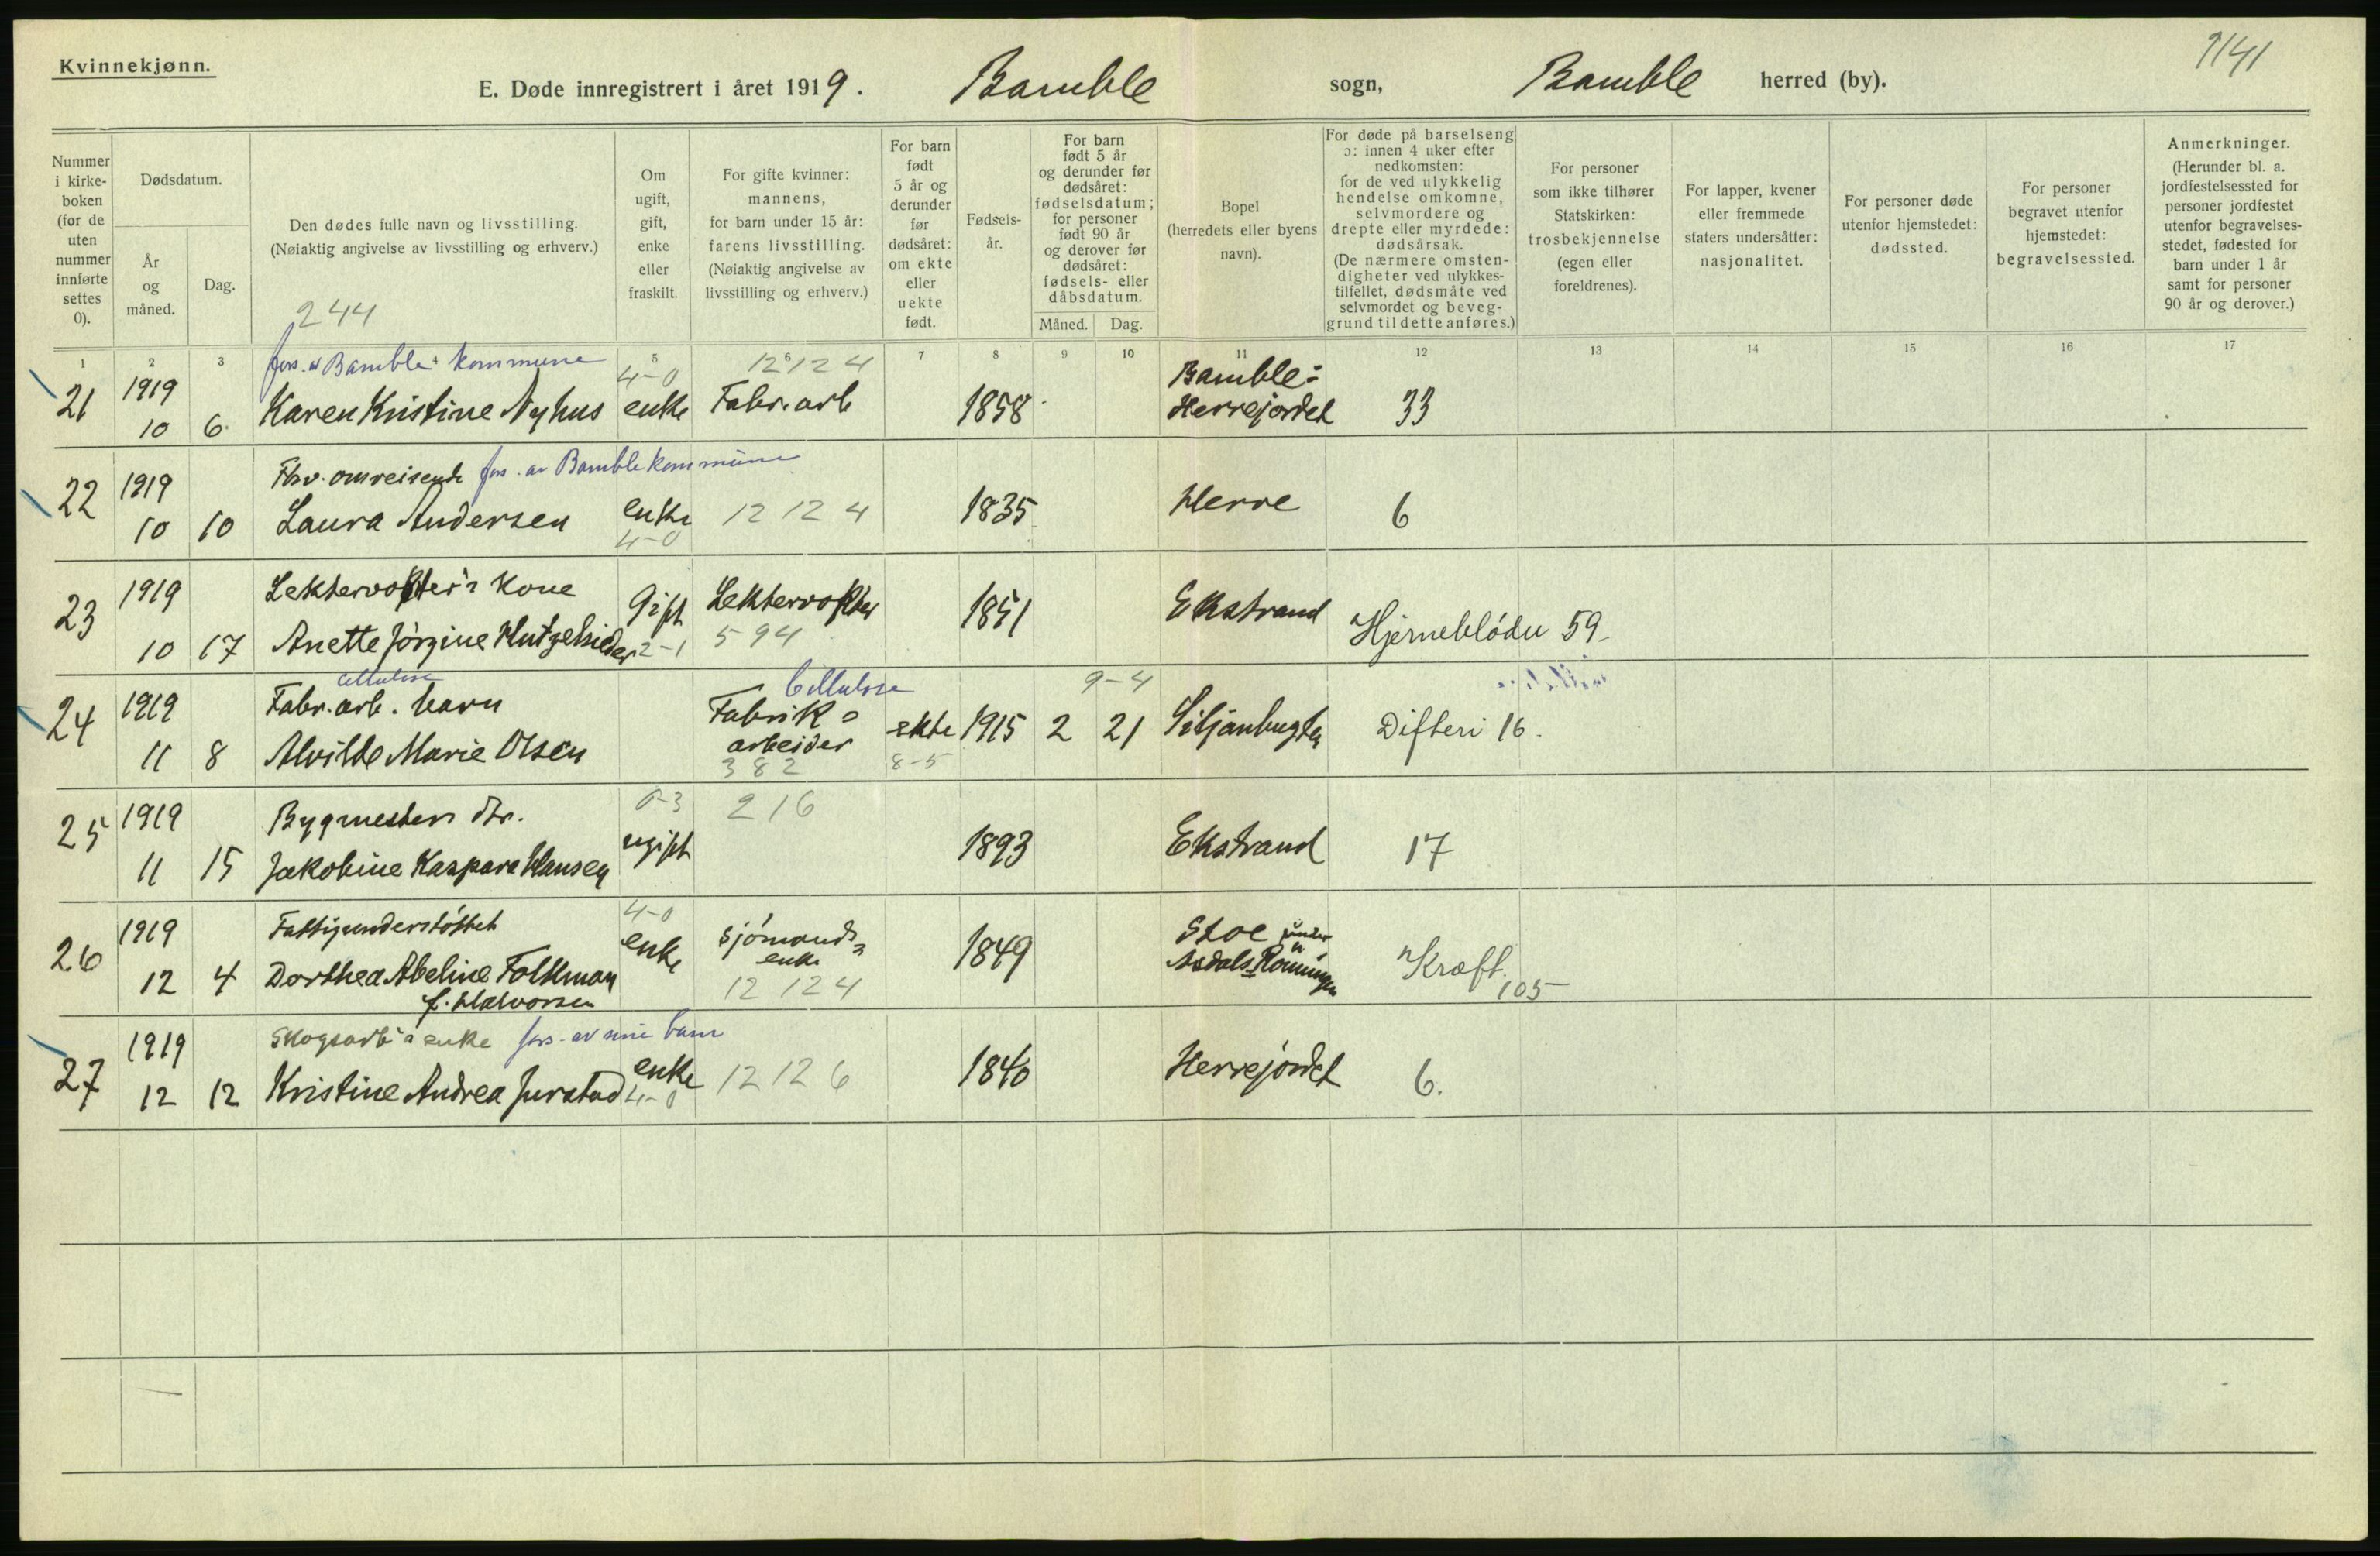 Kvinnekjønn.
1141
E. Døde innregistrert i året 1919. Bamble sogn, Bamble herred (by).
Nummer i kirkeboken (for de uten nummer innførte settes 0).
Dødsdatum.
År og måned.
Dag.
Den dødes fulle navn og livsstilling.
(Nøiaktig angivelse av livsstilling og erhverv.)
244
Om ugift, gift, enke eller fraskilt.
For gifte kvinner: mannens, for barn under 15 år: farens livsstilling. (Nøiaktig angivelse av livsstilling og erhverv.)
For barn født 5 år og derunder før dødsåret: om ekte eller uekte født.
Fødselsår.
For barn født 5 år og derunder før dødsåret: fødselsdatum; for personer født 90 år og derover før dødsåret: fødsels- eller dåbsdatum.
Måned. Dag.
Bopel (herredets eller byens navn).
For døde på barselseng ɔ: innen 4 uker efter nedkomsten: for de ved ulykkelig hendelse omkomne, selvmordere og drepte eller myrdede: dødsårsak. (De nærmere omstendigheter ved ulykkestilfellet, dødsmåte ved selvmordet og beveggrund til dette anføres.)
For personer som ikke tilhører Statskirken: trosbekjennelse (egen eller foreldrenes).
For lapper, kvener eller fremmede staters undersåtter: nasjonalitet.
For personer døde utenfor hjemstedet: dødssted.
For personer begravet utenfor hjemstedet: begravelsessted.
Anmerkninger. (Herunder bl. a. jordfestelsessted for personer jordfestet utenfor begravelsesstedet, fødested for barn under 1 år samt for personer 90 år og derover.)
1 2 3 4 5 6 7 8 9 10 11 12 13 14 15 16 17
fors. av Bamble kommune 4-0 12 12 4 Bamble:
21 1919 10 6 Karen Kristine Nyhus enke Fabr. arb 1858 Herrejordet 33
Fhv. omreisende fors. av Bamble kommune
22 1919 10 10 Laura Andersen enke 4-0 12 12 4 1835 Herre 6
Lektervokter's kone
23 1919 10 17 Anette Jörgine Hutzelsieder Gift 2-1 Lektervokter 594 1851 Ekstrand Hjerneblödn 59
cellulose Cellulose 9-4
Fabr. arb. barn
24 1919 11 8 Alvilde Marie Olsen Fabrik= arbeider 382 ekte 8-5 1915 2 21 Siljanbugten Difteri 16.
Bygmesters dtr. 6-3 216
25 1919 11 15 Jakobine Kaspara Hansen ugift 1893 Ekstrand 17
Fattigunderstöttet 4-0
26 1919 12 4 Dorthea Abeline Folkman f. Halvorsen enke Sjömands= enke 12 12 4 1849 Stoe under Asdals Rönningen Kræft. 105
Skogsarb's enke fors. av sine barn
27 1919 12 12 Kristine Andrea Jurstad enke 4-0 12 12 6 1840 Herrejordet 6.